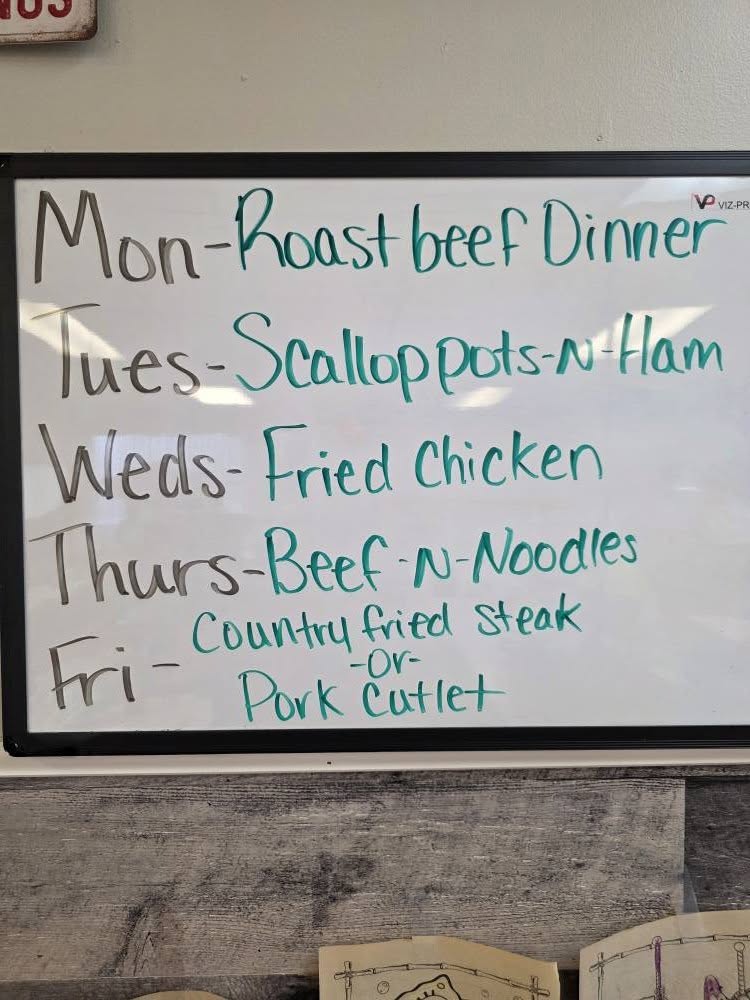 Mon-Roast beef Dinner
Tues-Scallop pots-N-Ham
Weds-Fried Chicken
Thurs-Beef-N-Noodles
Fri- Country fried steak
-or-
Pork Cutlet
VP VIZ-PR